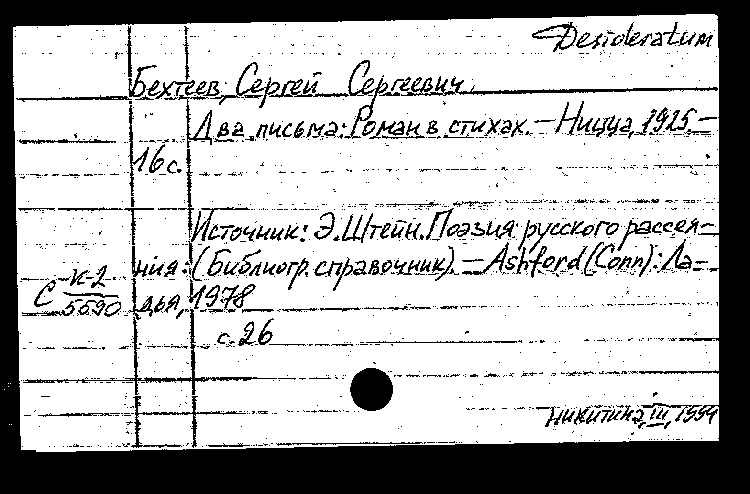 Desideratum
Бехтеев, Сергей Сергеевич.
Два письма: Роман в стихах. – Ницца, 1925. –
16 с.
Источник: Э. Штейн. Поэзия русского рассея-
ния: (Библиогр. справочник). – Ashford (Conn): Ла-
С К-2/5590 дья, 1978
с. 26
Никитина, III, 1994